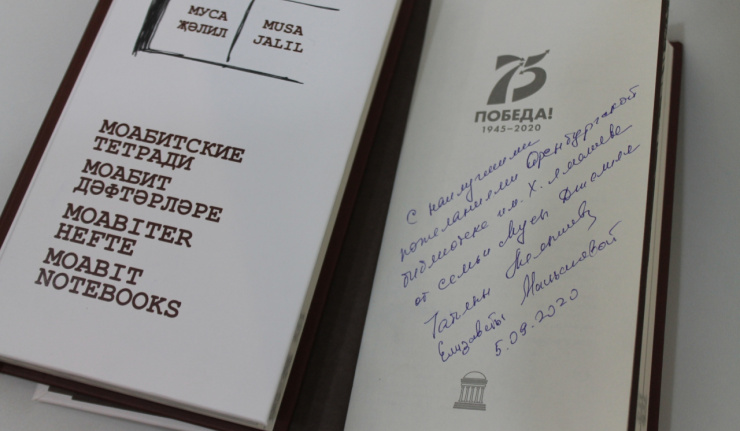 МУСА
ҖӘЛИЛ
MUSA
JALIL
МОАБИТСКИЕ
ТЕТРАДИ
МОАБИТ
ДӘФТӘРЛӘРЕ
MOABITER
HEFTE
MOABIT
NOTEBOOKS
75
ПОБЕДА!
1945–2020
С наилучшими
пожеланиями Оренбургской
библиотеке им. Х. Ямашева
от семьи Мусы Джалиля
Татьяны
Елизаветы Малышевой
5.09.2020